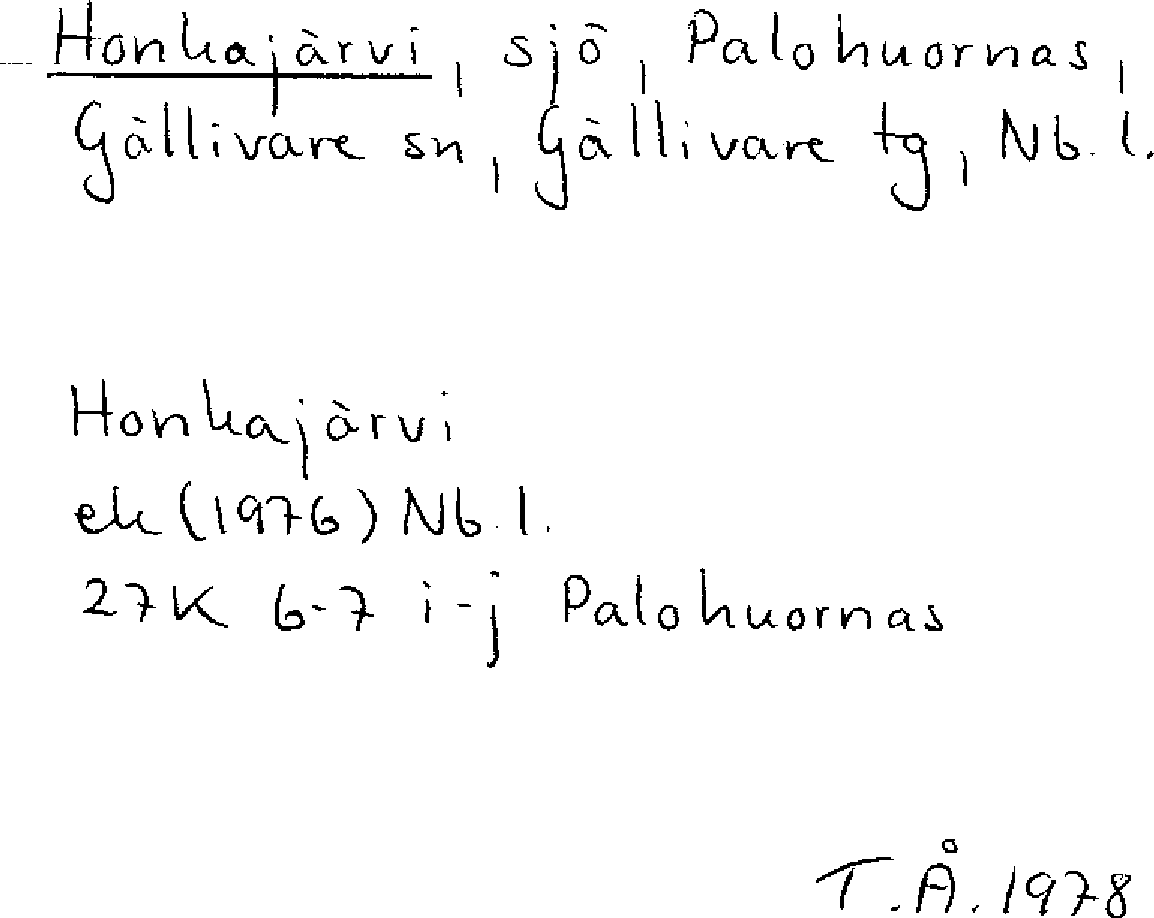 Honkajärvi, sjö, Palohuornas,
Gällivare sn, Gällivare tg, Nb. l.
Honkajärvi
ek (1976) Nb. l.
27K 6-7 i-j Palohuornas
T.Å. 1978